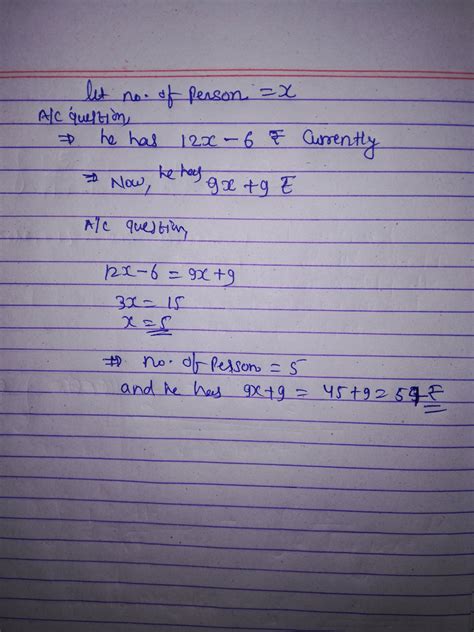 let no. of Person = x
A/C question,
⇒ he has 12x - 6 ₹ Currently
⇒ Now, he has 9x + 9 ₹
A/C question,
12x - 6 = 9x + 9
3x = 15
x = 5
⇒ no. of Person = 5
and he has 9x + 9 = 45 + 9 = 54 ₹